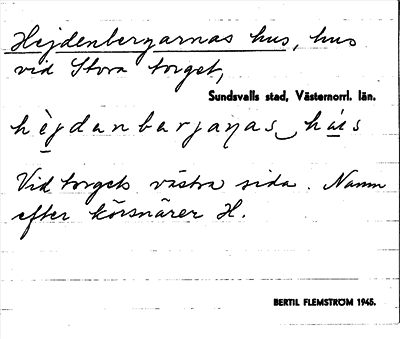 Hejdenbergarnas hus, hus
vid Stora torget,
Sundsvalls stad, Västernorrl. län.
hèjdanbarjaṇas‿hás
Vid torgets västra sida. Namn
efter körsnärer H.
BERTIL FLEMSTRÖM 1945.